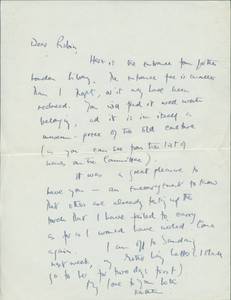 Dear Robin,
Here is the entrance form for the
London Library. The entrance fee is smaller
than I thought, or it may have been
reduced. You will find it well worth
belonging, and it is in itself a
museum-piece of the old culture
(as you can see from the list of
names on the Committee).
It was a great pleasure to
have you — an encouragement to know
that others are already taking up the
torch that I have failed to carry
as far as I would have wished. Come
again. I am off on Sunday
next week, my
go to her for two days first)
My love to you both